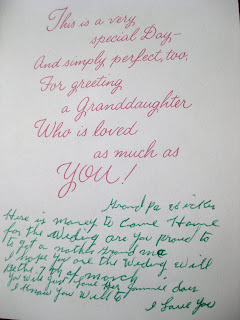 This is a very
special Day—
And simply perfect, too,
For greeting
a Granddaughter
Who is loved
as much as
YOU!
Grandpa
Here is money to come Home
for the Weding are you proud to
to get a nother Grand ma
I hope you are the Weding will
be the 7 day of march
You will just love her
I Know you will to
I Love You